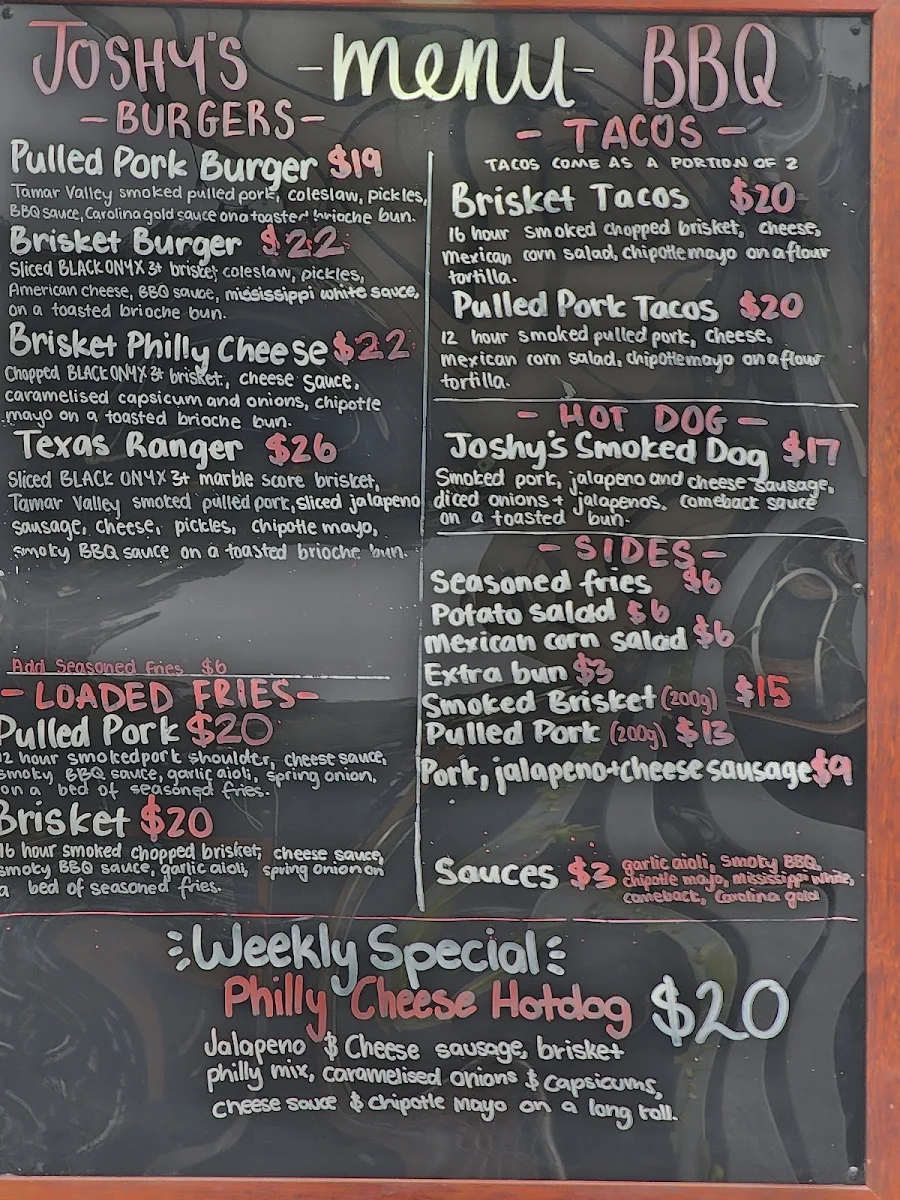 JOSHY'S -menu- BBQ
-BURGERS-
Pulled Pork Burger $19
Tamar Valley smoked pulled pork, coleslaw, pickles,
BBQ sauce, Carolina gold sauce on a toasted brioche bun.
Brisket Burger $22
Sliced BLACK ONYX 3+ brisket coleslaw, pickles,
American cheese, BBQ sauce, mississippi white sauce,
on a toasted brioche bun.
Brisket Philly Cheese $22
Chopped BLACK ONYX 3+ brisket, cheese sauce,
caramelised capsicum and onions, chipotle
mayo on a toasted brioche bun.
Texas Ranger $26
Sliced BLACK ONYX 3+ marble score brisket,
Tamar Valley smoked pulled pork, sliced jalapeno
sausage, cheese, pickles, chipotle mayo,
smoky BBQ sauce on a toasted brioche bun.
Add Seasoned fries $6
-LOADED FRIES-
Pulled Pork $20
12 hour smoked pork shoulder, cheese sauce,
smoky BBQ sauce, garlic aioli, spring onion,
on a bed of seasoned fries.
Brisket $20
16 hour smoked chopped brisket, cheese sauce,
smoky BBQ sauce, garlic aioli, spring onion on
a bed of seasoned fries.
- TACOS -
TACOS COME AS A PORTION OF 2
Brisket Tacos $20
16 hour smoked chopped brisket, cheese,
mexican corn salad, chipotle mayo on a flour
tortilla.
Pulled Pork Tacos $20
12 hour smoked pulled pork, cheese,
mexican corn salad, chipotle mayo on a flour
tortilla.
- HOT DOG -
Joshy's Smoked Dog $17
Smoked pork, jalapeno and cheese sausage,
diced onions + jalapenos, comeback sauce
on a toasted bun.
- SIDES -
Seasoned fries $6
Potato salad $6
mexican corn salad $6
Extra bun $3
Smoked Brisket (200g) $15
Pulled Pork (200g) $13
Pork, jalapeno+cheese sausage $9
Sauces $3 garlic aioli, Smoky BBQ,
chipotle mayo, mississippi white,
comeback, Carolina gold
Weekly Special
Philly Cheese Hotdog $20
Jalapeno $ Cheese sausage, brisket
philly mix, caramelised onions $ capsicums,
cheese sauce $ chipotle Mayo on a long roll.